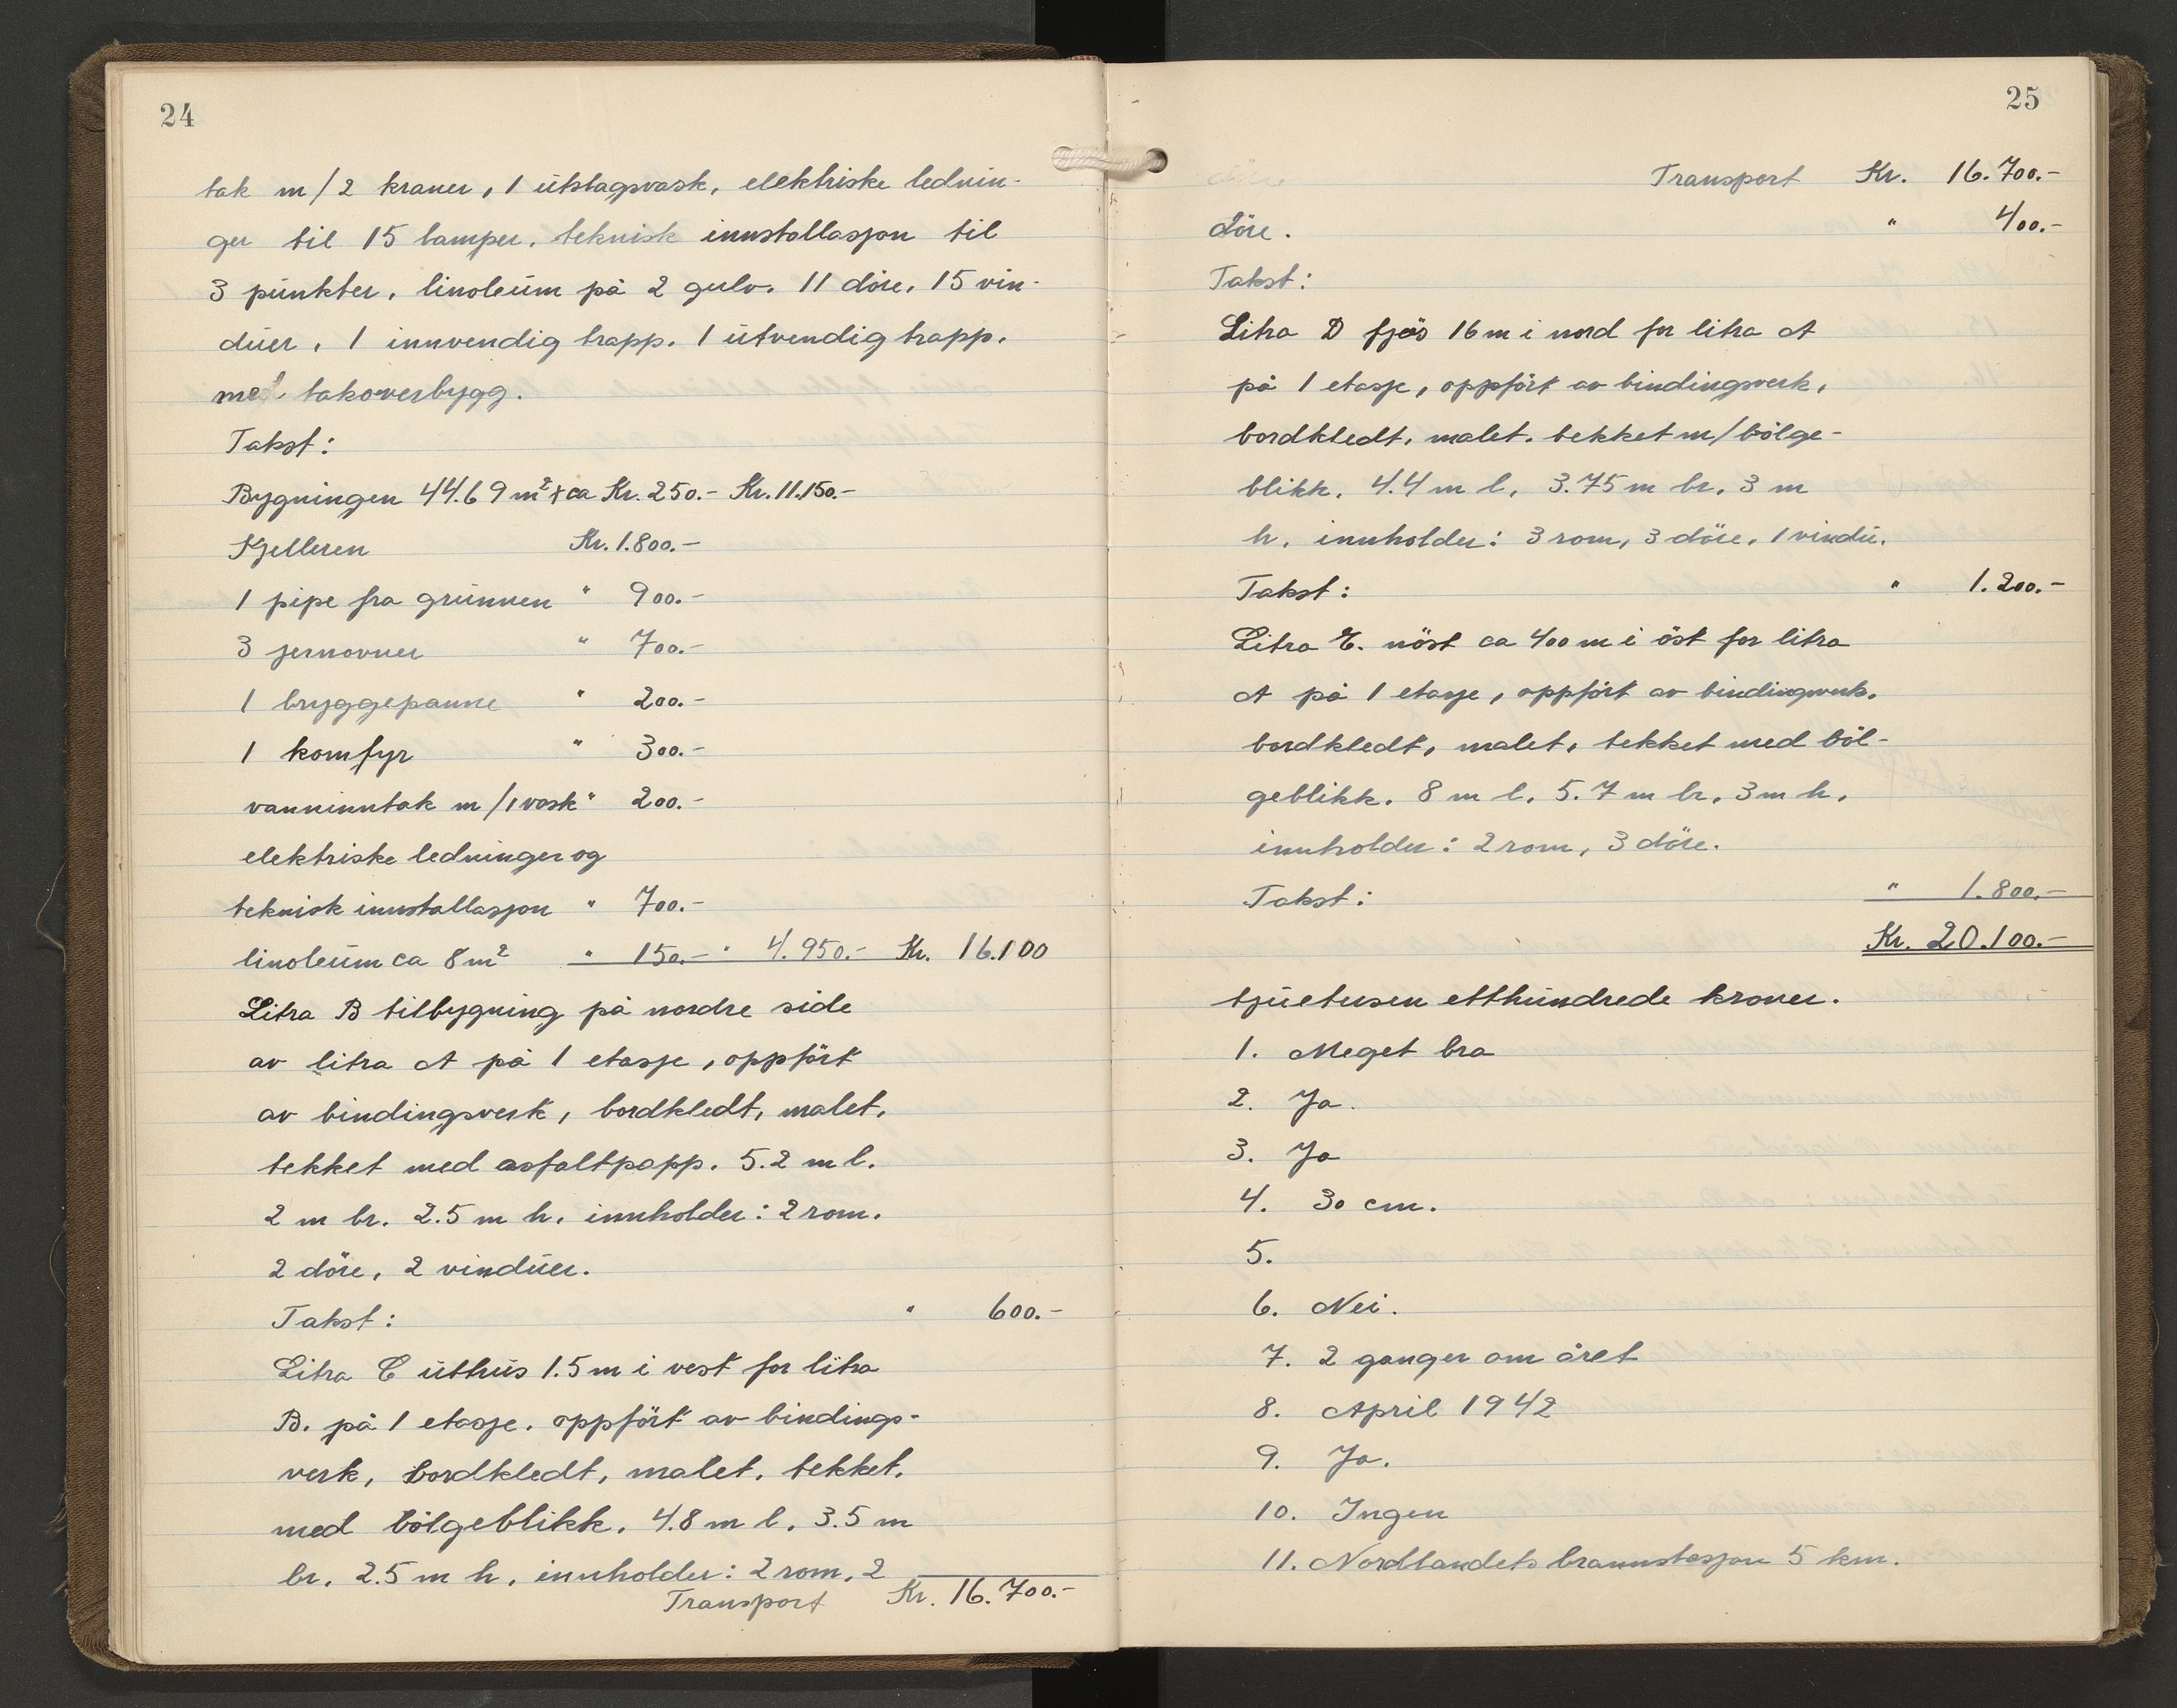 24
tak m/2 kraner, 1 utslagsvask, elektriske lednin-
ger til 15 lamper, teknisk innstallasjon til
3 punkter, linoleum på 2 gulv. 11 döre, 15 vin-
duer, 1 innvendig trapp. 1 utvendig trapp.
med takoverbygg.
Takst:
Bygningen 44.69 m² x ca Kr. 250.- Kr. 11.150.-
Kjelleren Kr. 1.800.-
1 pipe fra grunnen " 900.-
3 jernovner " 700.-
1 bryggepanne " 200.-
1 komfyr " 300.-
vanninntak m/1 vask " 200.-
elektriske ledninger og
teknisk innstallasjon " 700.-
linoleum ca 8 m² " 150.- " 4.950.- Kr. 16.100
Litra B tilbygning på nordre side
av litra A på 1 etasje, oppfört
av bindingsverk, bordkledt, malet,
tekket med asfaltpapp. 5.2 m l.
2 m br. 2.5 m h. innholder: 2 rom.
2 döre, 2 vinduer.
Takst: " 600.-
Litra C uthus 1.5 m i vest for litra
B. på 1 etasje. oppfört av bindings-
verk, bordkledt, malet, tekket.
med bölgeblikk. 4.8 m l. 3.5 m
br. 2.5 m h. innholder: 2 rom, 2
Transport Kr. 16.700.-
25
Transport Kr. 16.700.-
döre. " 400.-
Takst:
Litra D fjös 16 m i nord for litra A
på 1 etasje, oppfört av bindingsverk,
bordkledt, malet. tekket m/bölge-
blikk. 4.4 m l. 3.75 m br. 3 m
h. innholder: 3 rom, 3 döre, 1 vindu.
Takst: " 1.200.-
Litra E. nöst ca 400 m i öst for litra
A på 1 etasje, oppfört av bindingverk.
bordkledt, malet, tekket med böl-
geblikk. 8 m l. 5.7 m br. 3 m h.
innholder: 2 rom, 3 döre.
Takst: " 1.800.-
Kr. 20.100.-
tjuetusen etthundrede kroner.
1. Meget bra
2. Ja.
3. Ja
4. 30 cm.
5.
6. Nei.
7. 2 ganger om året
8. April 1942
9. Ja.
10. Ingen
11. Nordlandets brannstasjon 5 km.